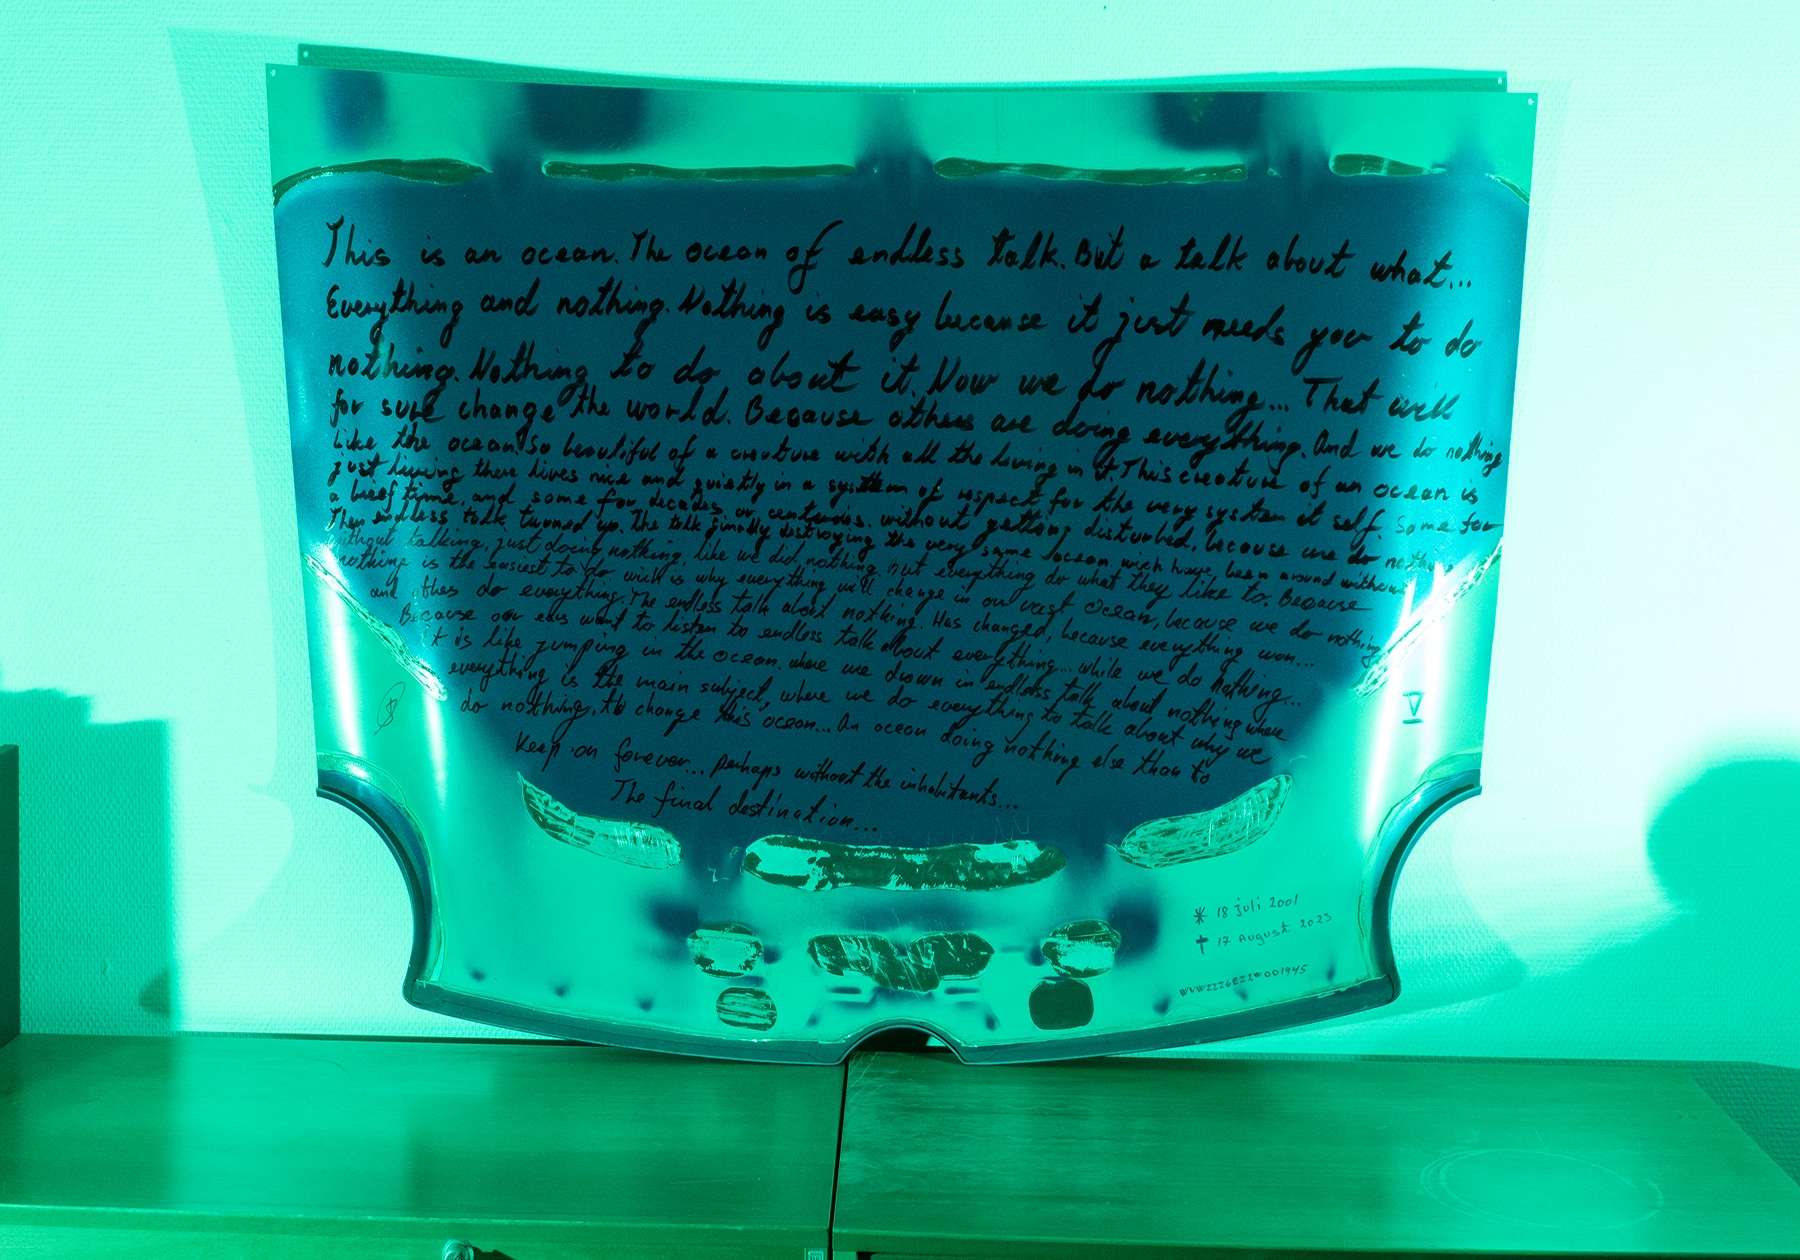 This is an ocean. The ocean of endless talk. But a talk about what...
Everything and nothing. Nothing is easy because it just needs you to do
nothing. Nothing to do about it. Now we do nothing... That will
for sure change the world. Because others are doing everything. And we do nothing
Like the ocean. So beautiful of a creature with all the living in it. This creature of an ocean is
just living there lives nice and quietly in a system of respect for the very system it self. Some for
a brief time, and some for decades or centuries. without getting disturbed, because we do nothing
Then endless talk turned up. The talk finally destroying the very same ocean wich have been around without
without talking, just doing nothing, like we did nothing But everything do what they like to. Because
nothing is the easiest to do wich is why everything will change in our vast Ocean, because we do nothing
and othes do everything. The endless talk about nothing. Has changed, because everything won...
Because our ears want to listen to endless talk about everything... while we do nothing...
it is like jumping in the ocean. where we drown in endless talk about nothing where
everything is the main subject, where we do everything to talk about why we
do nothing, to change this ocean... An ocean doing nothing else than to
Keep on forever... perhaps without the inhabitants...
The final destination...
V
* 18 juli 2001
† 17 August 2023